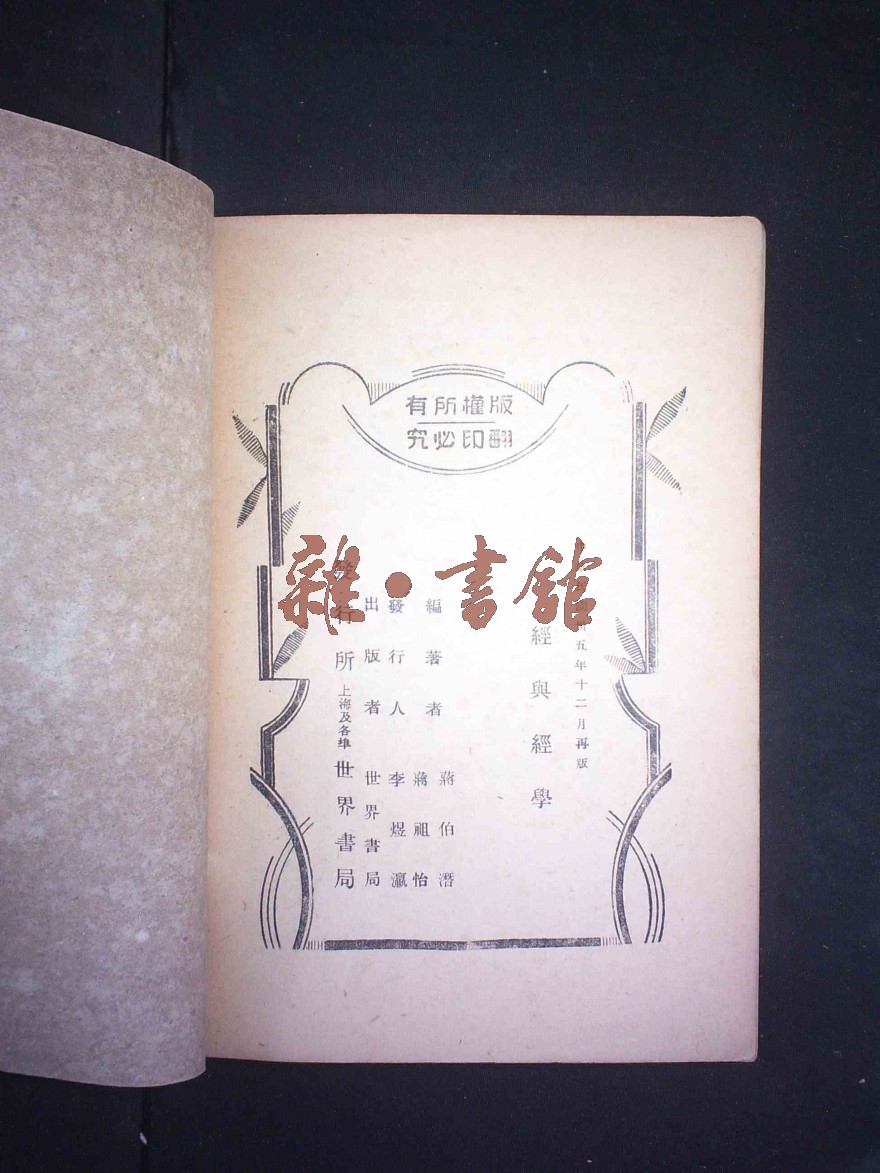 版權所有
翻印必究
五年十二月再版
經與經學
編著者 蔣伯潛
蔣祖怡
發行人 李煜瀛
出版者 世界書局
發行所 上海及各埠 世界書局
雜·書館